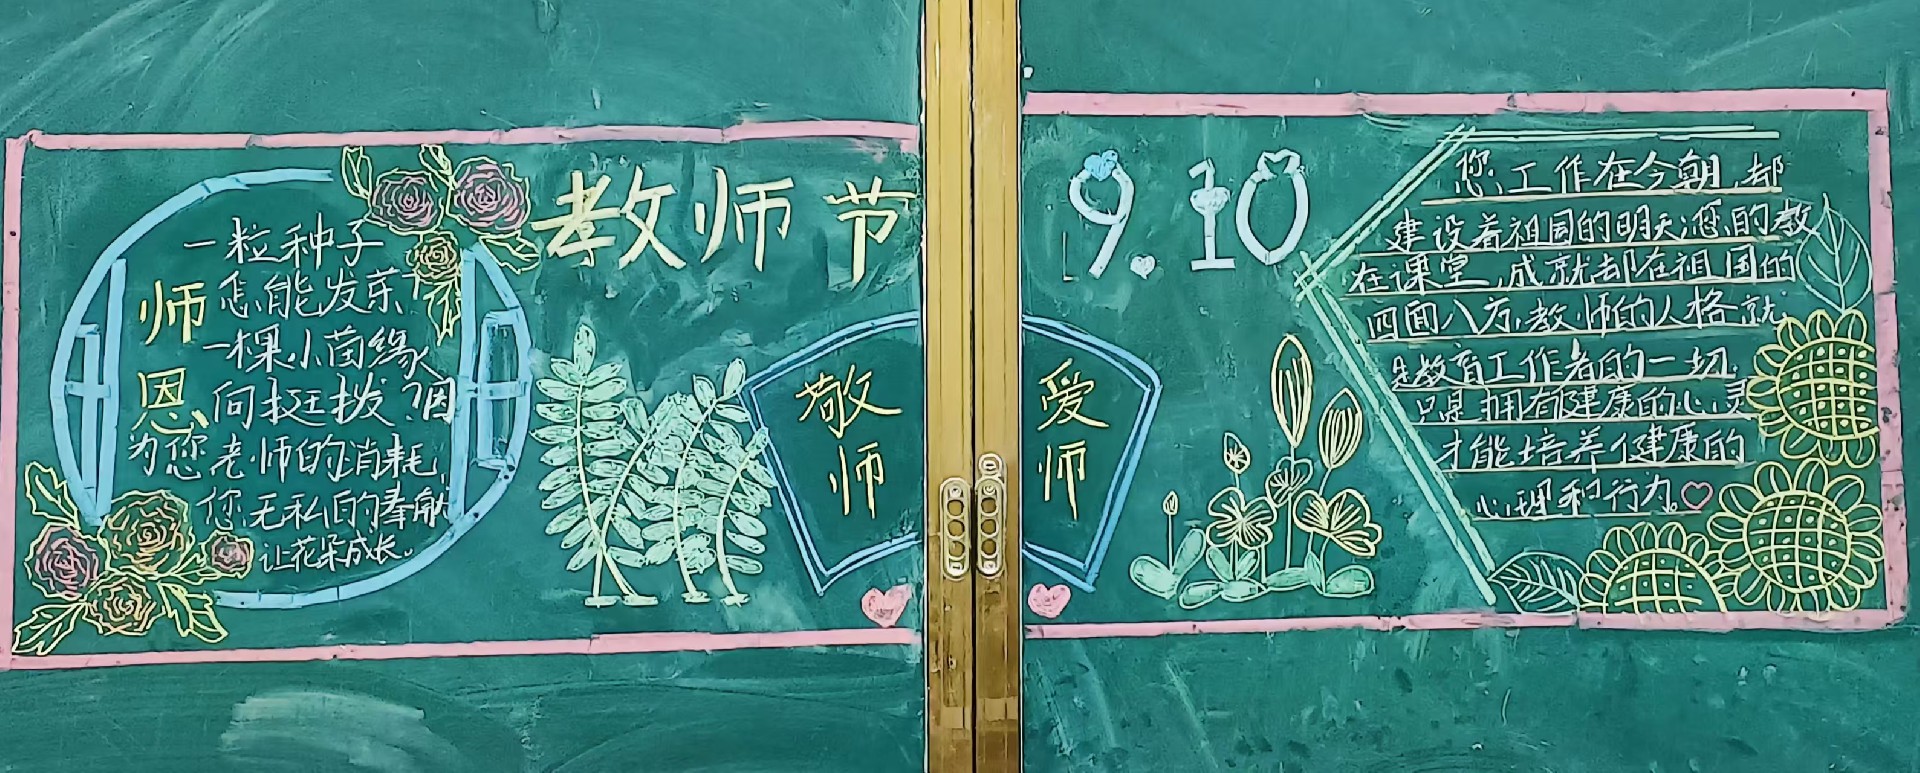 教师节
9.10
师恩
一粒种子
怎能发芽
一棵小苗缘
何挺拔?因
为您老师的消耗,
您无私的奉献
让花朵成长。
敬师
爱师
您,工作在今朝,却
建设着祖国的明天;您的教
在课堂,成就却在祖国的
四面八方,教师的人格就
是教育工作者的一切,
只是拥有健康的心灵
才能培养健康的
心理和行为。